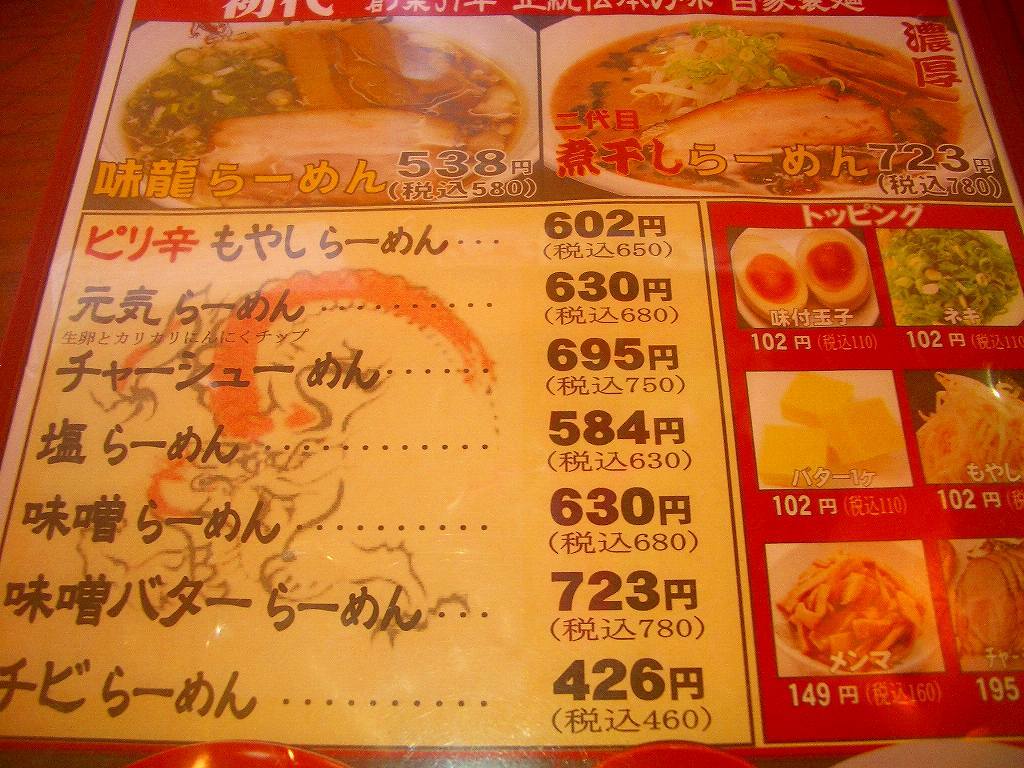 初代 創業51年 正統伝承の味 自家製麺
味龍らーめん 538円
(税込580)
濃厚
二代目
煮干しらーめん 723円
(税込780)
ピリ辛 もやしらーめん… 602円
(税込650)
元気らーめん.......... 630円
(税込680)
生卵とカリカリにんにくチップ
チャーシューめん...... 695円
(税込750)
塩らーめん .......... 584円
(税込630)
味噌らーめん .......... 630円
(税込680)
味噌バターらーめん... 723円
(税込780)
チビらーめん .......... 426円
(税込460)
トッピング
味付玉子
102円(税込110)
ネギ
102円(税込110
バター1ヶ
102円(税込110)
もやし
102円(税
メンマ
149円(税込160)
チャー
195